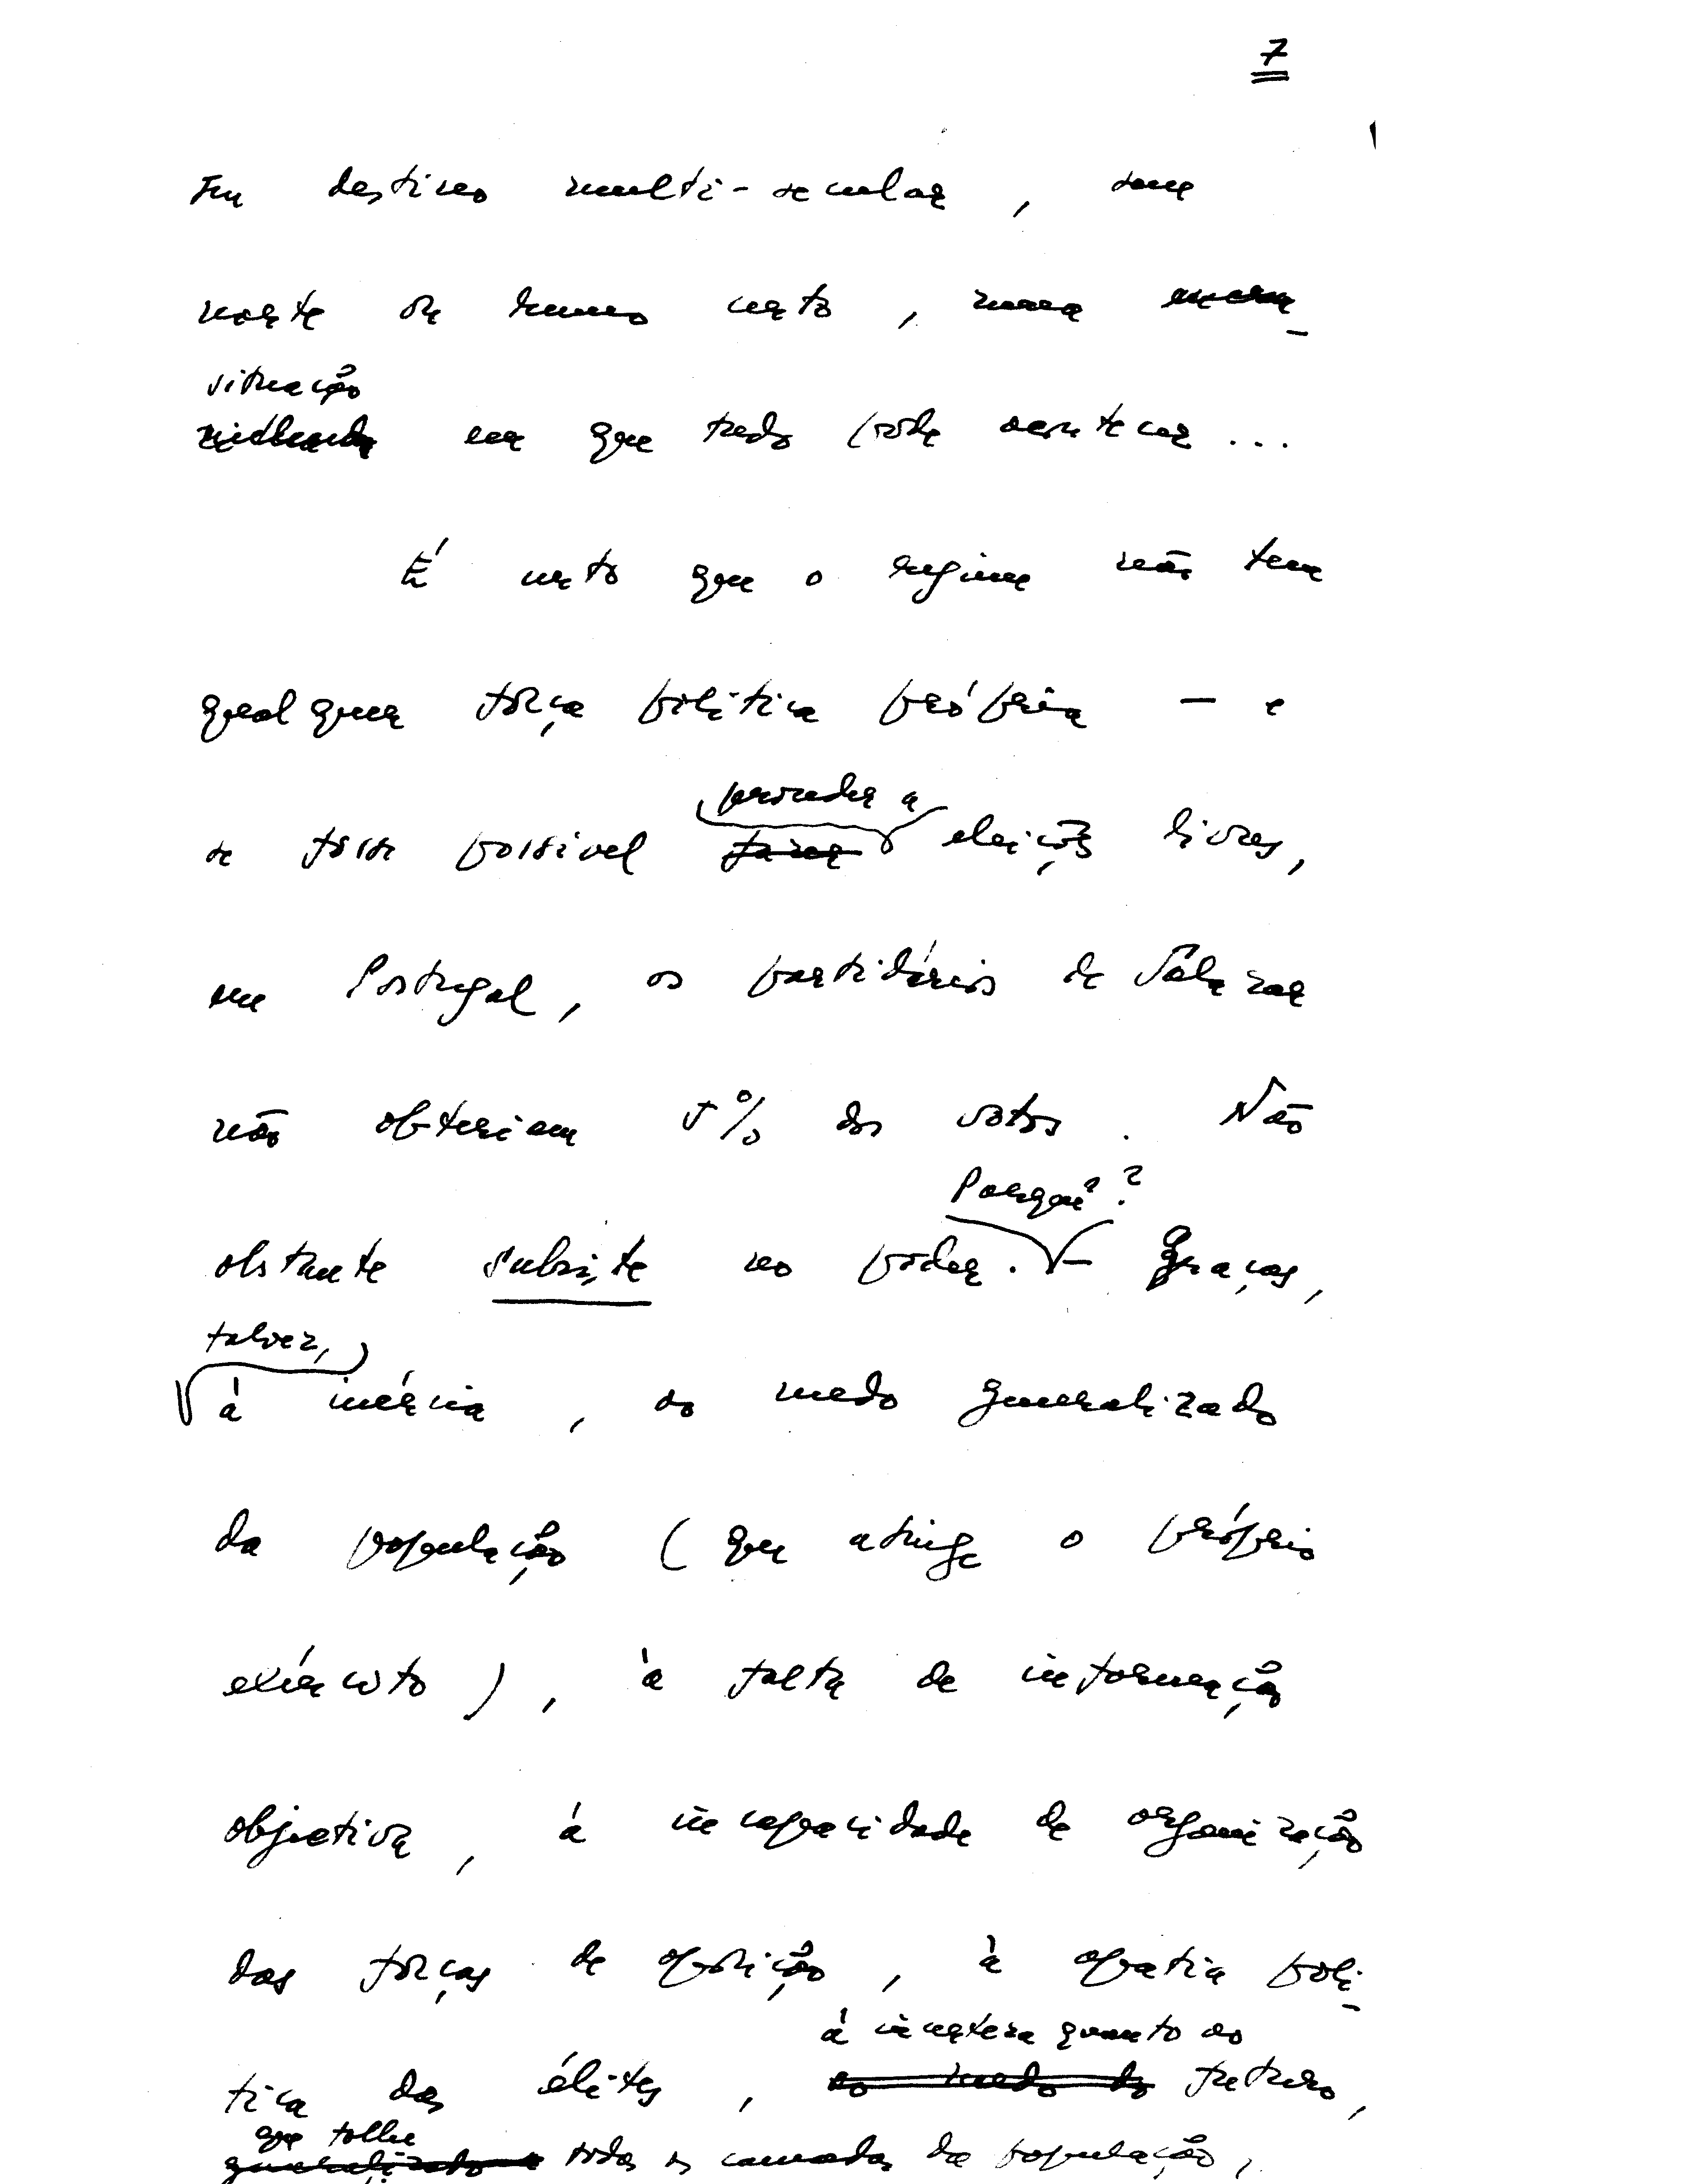 7
seu destino multi-secular, sem
norte ou rumo certo, numa
situação
em que tudo pode acontecer...
É certo que o regime não tem
qualquer força política própria — e
proceder a
se fosse possível fazer eleições livres,
em Portugal, os partidários de Salazar
não obteriam 5% dos votos. Não
Porquê?
obstante subsiste no poder. — Graças,
talvez,
à inércia, ao medo generalizado
da população (que atinge o próprio
exército), à falta de informação
objectiva, à incapacidade de organização
das forças de oposição, à apatia polí-
à incerteza quanto ao
tica das élites, ao medo do futuro,
que tolhe
generalizado a todas as camadas da população,